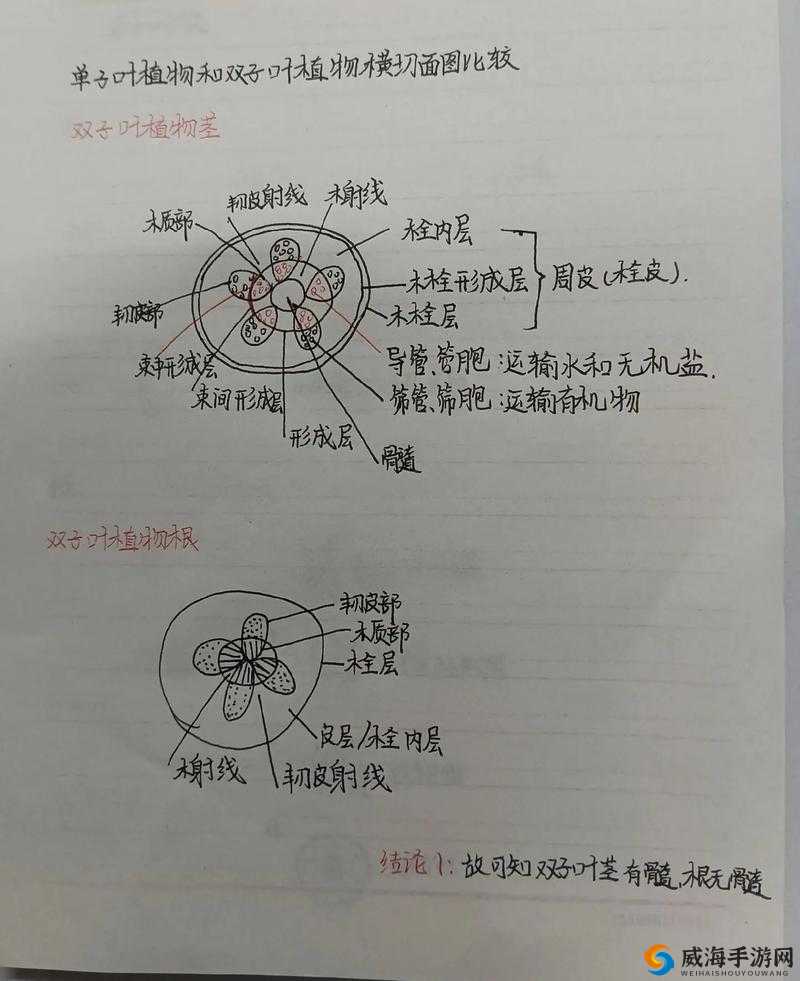 单子叶植物和双子叶植物横切面图比较
双子叶植物茎
韧皮射线
木射线
木质部
栓内层
韧皮部
木栓形成层
周皮(栓皮).
木栓层
束中形成层
导管、管胞:运输水和无机盐.
束间形成层
筛管、筛胞:运输有机物
形成层
骨髓
双子叶植物根
韧皮部
木质部
栓层
皮层/栓内层
木射线
韧皮射线
结论1: 故可知双子叶茎有骨髓,根无骨髓
威海手游网
WEIHAISHOUYOUWANG